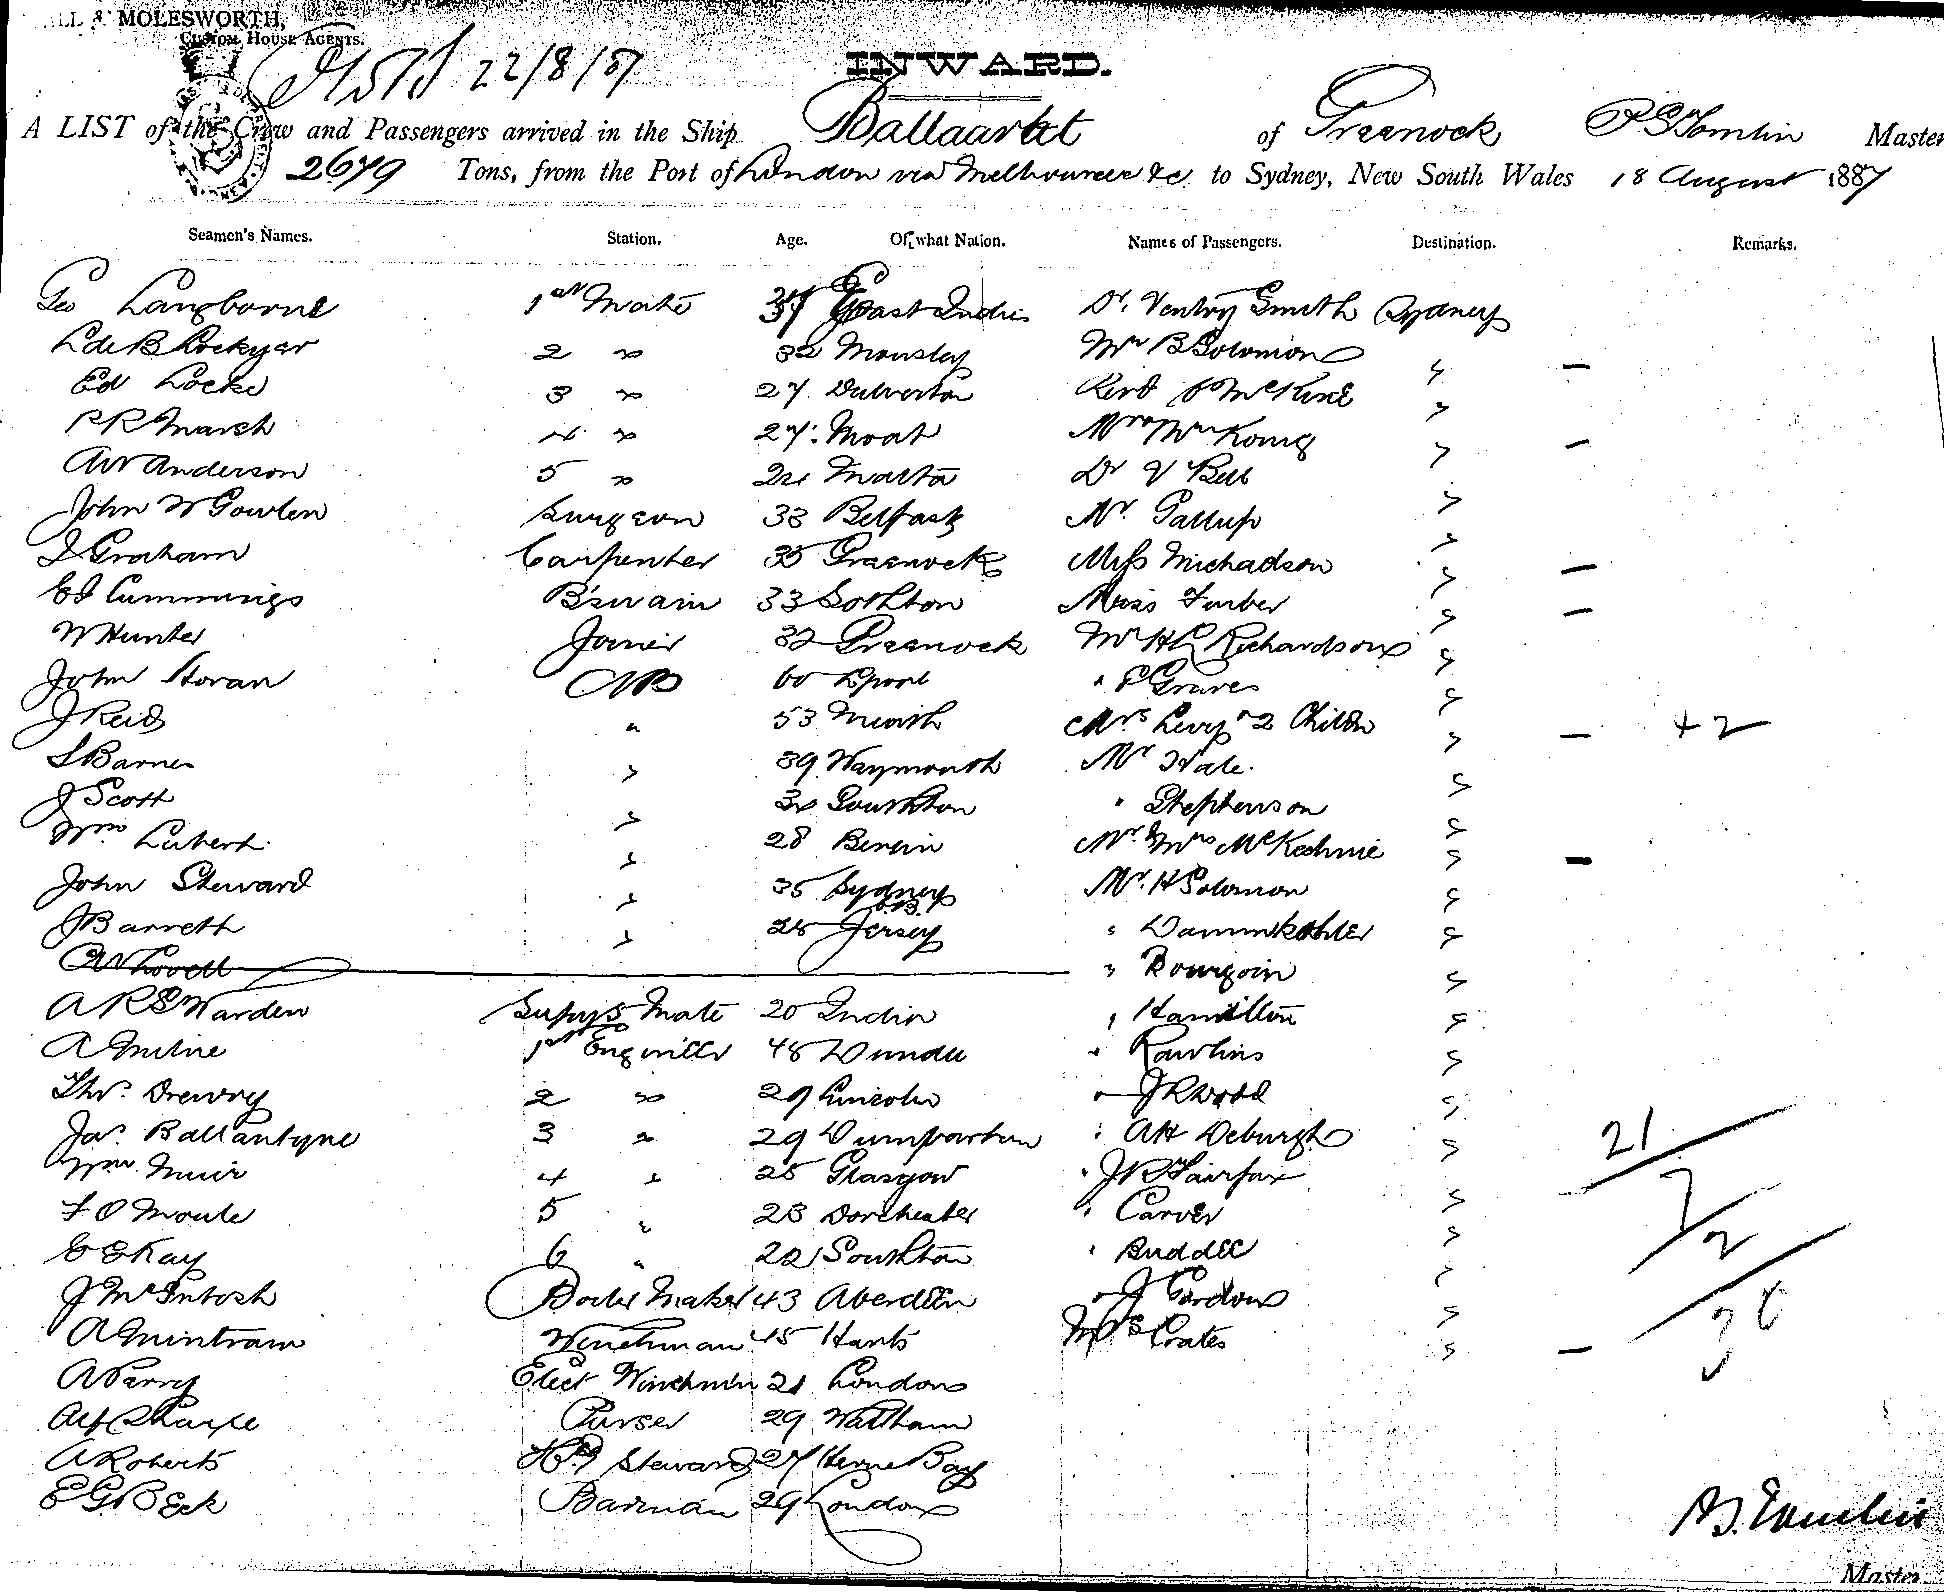 MOLESWORTH,
CUSTOM HOUSE AGENTS.
22/8/87
INWARD.
A LIST of the Crew and Passengers arrived in the Ship Ballaarat of Greenock P S Tomlin Master
2679 Tons, from the Port of London via Melbourne &c to Sydney, New South Wales 18 August 1887
Seamen's Names. Station. Age. Of what Nation. Names of Passengers. Destination. Remarks.
Geo Langborne 1st Mate East Indies Dr. Ventry Smith Sydney
L de B Lockyer 2 " 32 Mousley Mr B Solomon " —
Ed Locke 3 " 27 Dulverton "
R R Marsh 4 " 27 Moat Mr & Mrs Konig " —
A W Anderson 5 " 24 Malta Dr V Bell "
John W Gowlen Surgeon 33 Belfast Mr. Gallup "
D Graham Carpenter 35 Greenock Miss Michadson " —
E J Cummings B'swain 33 Sothton Miss Furber " —
W Hunter Joiner 32 Greenock Mr H L Richardson "
John Horan AB 60 Lpool " E Graves "
J Reid " 53 Meath Mrs Levy & 2 Childn " — + 2
S Barnes " 39 Waymouth Mr Hale "
J Scott " 34 Southton " Stephenson "
Wm Lubert " 28 Mr & Mrs McKechnie " —
John Steward " 35 Sydney Mr. H Solomon "
J Barrett " 25 Jersey " Dannnkohler "
A W Lovell " Bourgoin "
A R S Warden Supys Mate 20 India " Hamilton "
A Milne 1st Engineer 48 Dundee " Rawlins "
Thos. Drewry 2 " 29 Lincoln " J R Wood "
Jas. Ballantyne 3 " 29 Dumbarton " A H Deburgh "
Wm Muir 4 " 25 Glasgow " J R Fairfax "
F O Moule 5 " 23 Dorchester " Carver "
E E Kay 6 " 22 Southton " Buddee "
J McIntosh Boiler Maker 43 Aberdeen " J Gordon "
A Mintram Winchman 45 Hants Mrs Coates " —
A Parry Elect Winchmn 21 London
Alf Sharpe Purser 29 Waltham
A Roberts Hd Steward 27 Herne Bay
E G Beck Barman 29 London
21
7
2
30
P S. Tomlin
Master